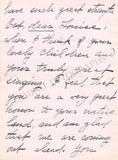 have such great students
but dear Louise.
when I think of your
lovely children and
your truly great
singing, I feel that
you are a very great
loss to your native
land, and am
that we are coming
out ahead. You